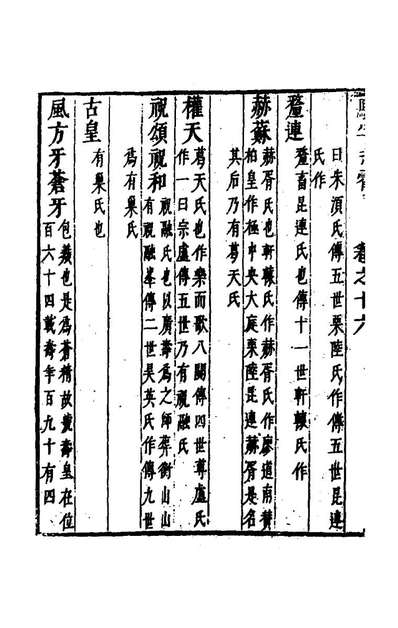 卷之十六
曰朱須氏傳五世栗陸氏作傳五世昆連
氏作
螯連
螯畜昆連氏也傳十一世軒轅氏作
赫蘇
赫胥氏也軒轅氏作赫胥氏作
柏皇作極中央大庭栗陸昆連赫胥是名
其后乃有葛天氏
權天
葛天氏也作樂而歌八闋傳四世尊盧氏
作一曰宗盧傳五世乃有祝融氏
祝頌祝和
祝融氏也以廣壽爲之師葬衡山山
有祝融峯傳二世吴英氏作傳九世
爲有巢氏
古皇
有巢氏也
風方牙蒼牙
包羲也是爲蒼精故號壽皇在位
百六十四載壽年百九十有四